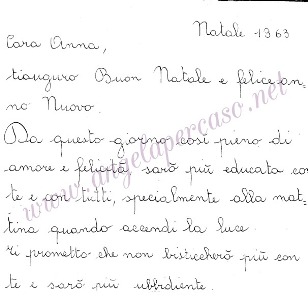 Natale 1963
Cara Anna,
tiauguro Buon Natale e felice an-
no Nuovo.
Da questo giorno così pieno di
amore e felicità sarò più educata con
te e con tutti, specialmente alla mat-
tina quando accendi la luce.
Ti prometto che non bisticcherò più con
te e sarò più ubbidiente.
www.angelapercaso.net